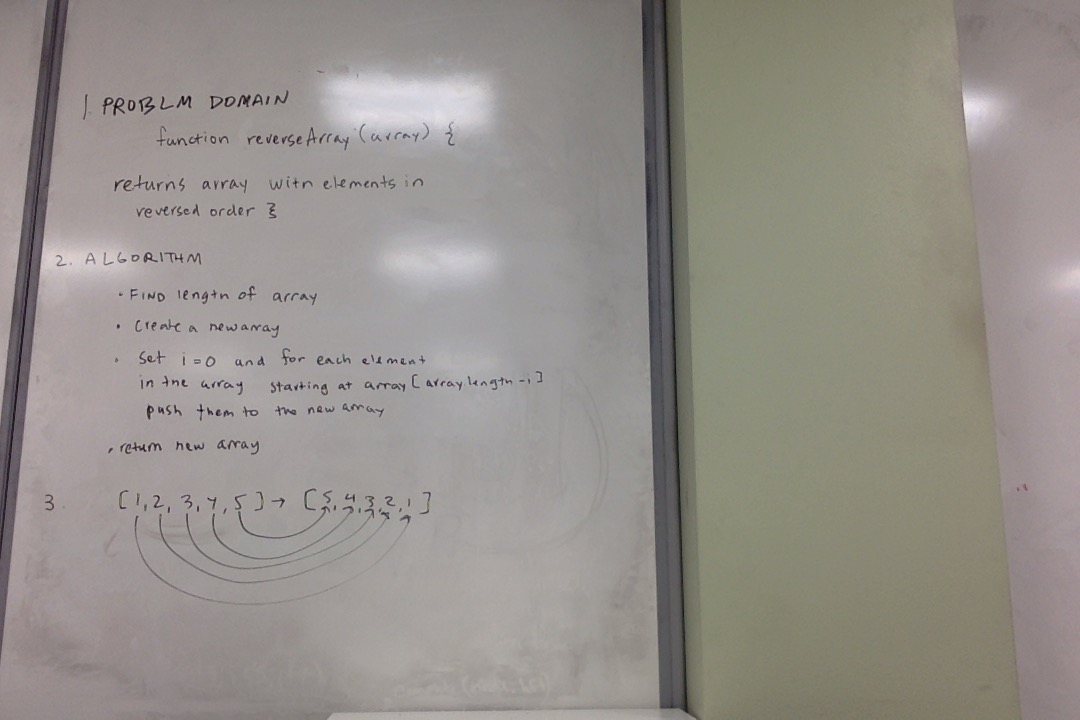 1. PROBLM DOMAIN
function reverseArray (array) {
returns array with elements in
reversed order }
2. ALGORITHM
• FIND length of array
• Create a new array
• Set i=0 and for each element
in the array starting at array [array length -1]
push them to the new array
• return new array
3 [1,2,3,4,5] → [5,4,3,2,1]